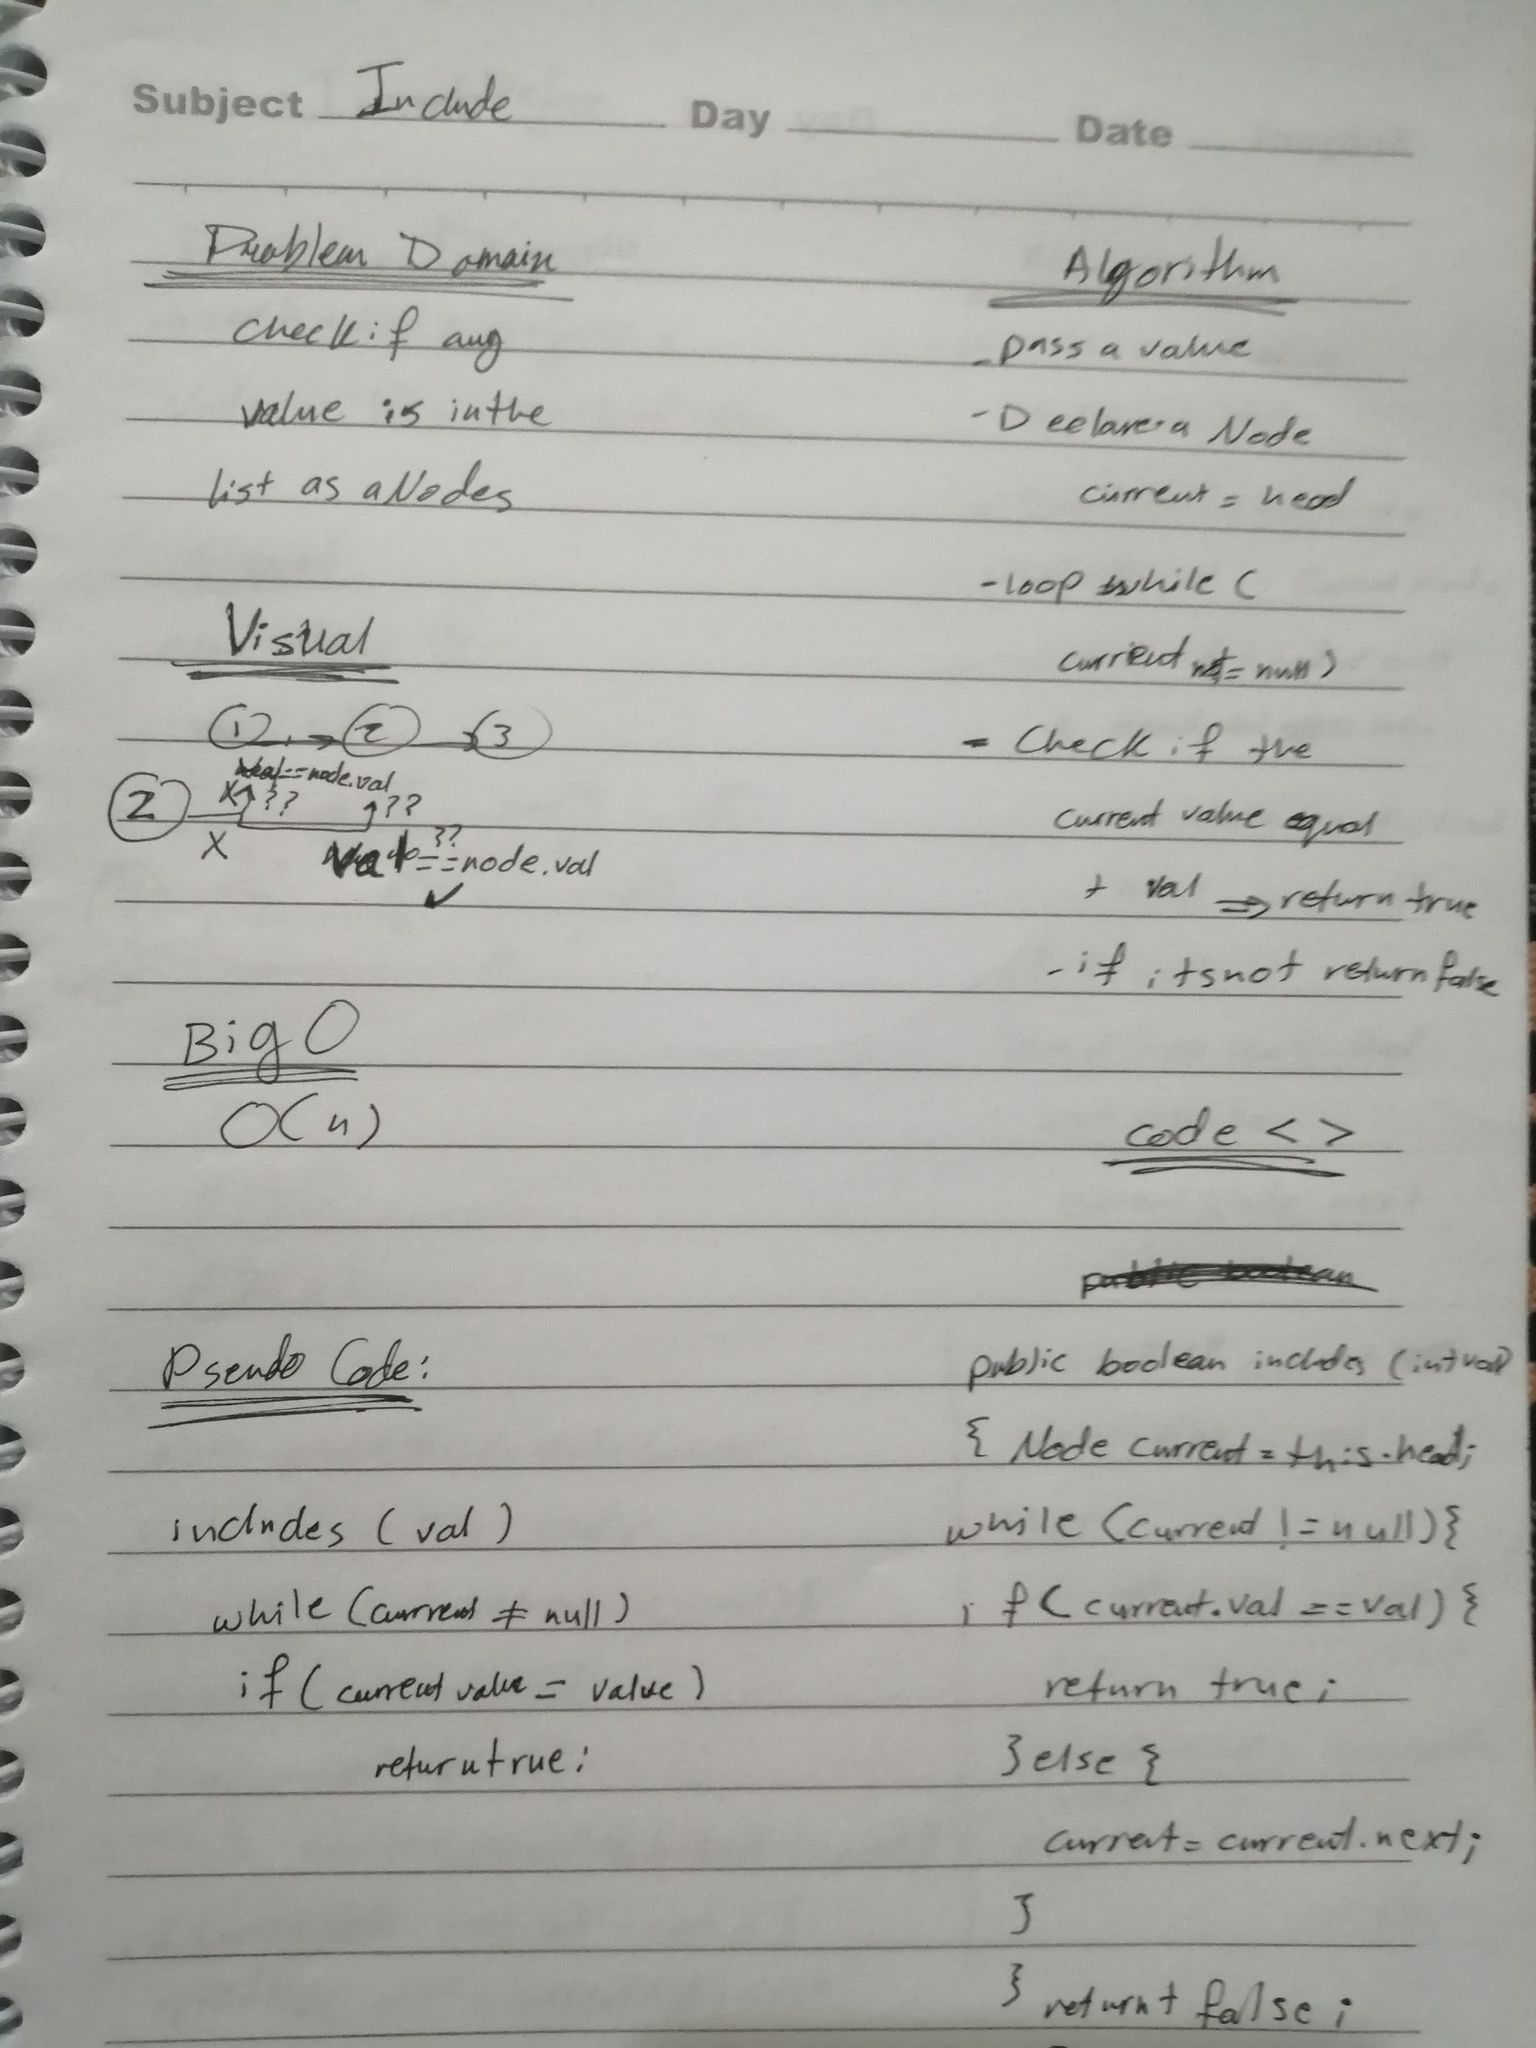 Subject Include Day Date
Problem Domain
check if any
value is in the
list as a Nodes
Visual
1 → 2 → 3
==node.val
2 X ?? ??
X ??
val==node.val
✓
Big O
O(n)
Pseudo Code:
includes (val)
while (current ≠ null)
if (current value = value)
return true;
Algorithm
- pass a value
- Declare a Node
current = head
- loop while (
current not = null)
- Check if the
current value equal
+ val ⇒ return true
- if itsnot return false
code < >
public boolean
public boolean includes (int val)
{ Node current = this.head;
while (current != null) {
if (current.val == val) {
return true;
} else {
current = current.next;
}
} returnt false;